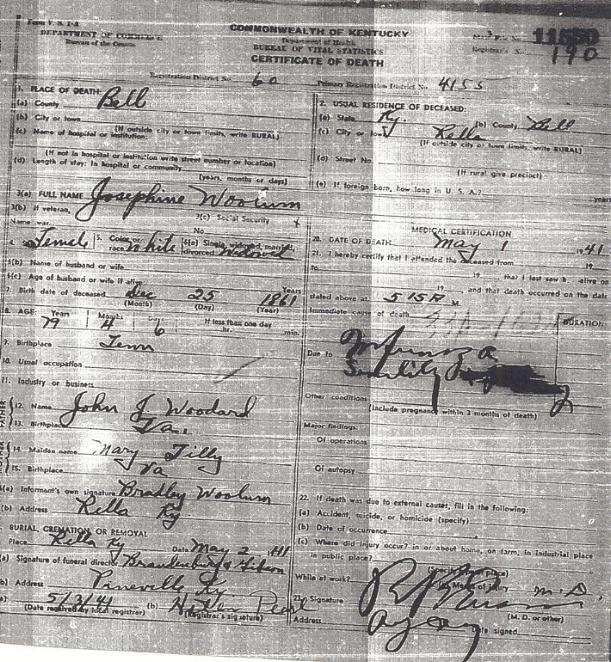 Form V. S. 1-A
DEPARTMENT OF COMMERCE
Bureau of the Census
COMMONWEALTH OF KENTUCKY
Department of Health
BUREAU OF VITAL STATISTICS
CERTIFICATE OF DEATH
11550
Registrar's No. 190
Registration District No. 60
Primary Registration District No. 4155
1. PLACE OF DEATH:
(a) County Bell
(b) City or town
(If outside city or town limits, write RURAL)
(c) Name of hospital or institution:
(If not in hospital or institution write street number or location)
(d) Length of stay: In hospital or community
(years, months or days)
2. USUAL RESIDENCE OF DECEASED:
(a) State Ky. (b) County Bell
(c) City or town Kella
(If outside city or town limits, write RURAL)
(d) Street No.
(If rural give precinct)
(e) If foreign born, how long in U. S. A.? years
3(a) FULL NAME Josephine Woolum
3(b) If veteran, Name war
3(c) Social Security No.
4. Female 5. Color or race White 6(a) Single, widowed, married, divorced Widowed
6(b) Name of husband or wife
6(c) Age of husband or wife if alive Years
7. Birth date of deceased Dec 25 1861
(Month) (Day) (Year)
8. AGE: Years Months If less than one day
79 4 6 hr. min.
9. Birthplace Tenn
10. Usual occupation
11. Industry or business
12. Name John J Woodard
13. Birthplace Va.
14. Maiden name Mary Tilly
15. Birthplace Va
(a) Informant's own signature Bradley Woolum
(b) Address Kella Ky
BURIAL, CREMATION OR REMOVAL
Place Kella Ky Date May 2 41
(a) Signature of funeral director
(b) Address Pineville Ky
5/3/41 (b)
(Date received by local registrar) (Registrar's signature)
MEDICAL CERTIFICATION
20. DATE OF DEATH May 1 1941
21. I hereby certify that I attended the deceased from 19
to 19 that I last saw h alive on
19 , and that death occurred on the date
stated above at 5 15 P M.
Immediate cause of death
DURATION
Due to
Senility
Other conditions
(Include pregnancy within 3 months of death)
Major findings:
Of operations
Of autopsy
22. If death was due to external causes, fill in the following:
(a) Accident, suicide, or homicide (specify)
(b) Date of occurrence
(c) Where did injury occur? in or about home, on farm, in industrial place
in public place?
(Specify type of place)
While at work? Means of Injury
23. Signature M.D.
(M. D. or other)
Address Date signed